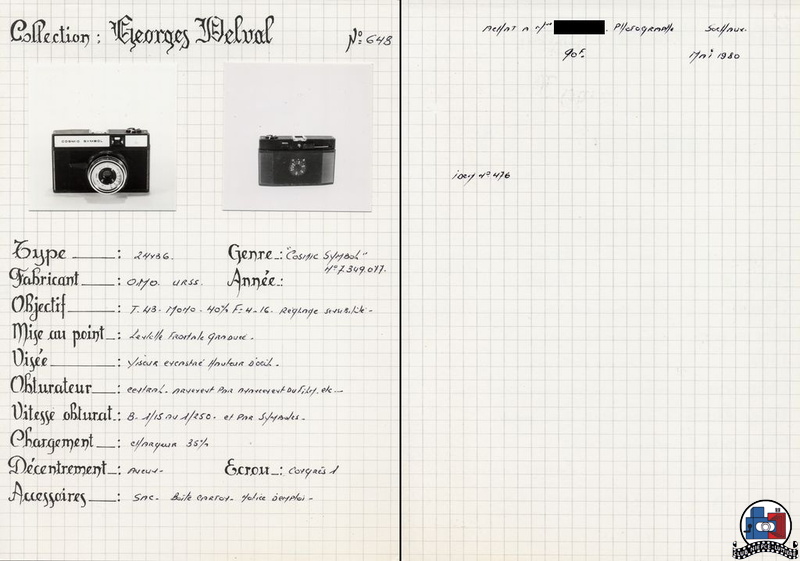 Collection : Georges Delval
N° 648
COSMIC SYMBOL
Type : 24x36.
Genre : "Cosmic Symbol"
N° 7.349.077.
Fabricant : O.M.O. URSS.
Année :
Objectif : T. 43. Moyo. 40% F: 4-16. Reglage sensibilité -
Mise au point : Lentille Frontale Graduée -
Visée : Viseur encastré Hauteur D'oeil -
Obturateur : central. Par avancement Du Film. etc -
Vitesse obturat. : B. 1/15 au 1/250. et Par Symboles -
Chargement : chargeur 35%
Décentrement : Aucun -
Ecrou : Congrès 1
Accessoires : Sac - Boîte carton - Notice D'emploi -
Achat a Mr . Photographe Sochaux.
90F.
Mai 1980
idem N° 476